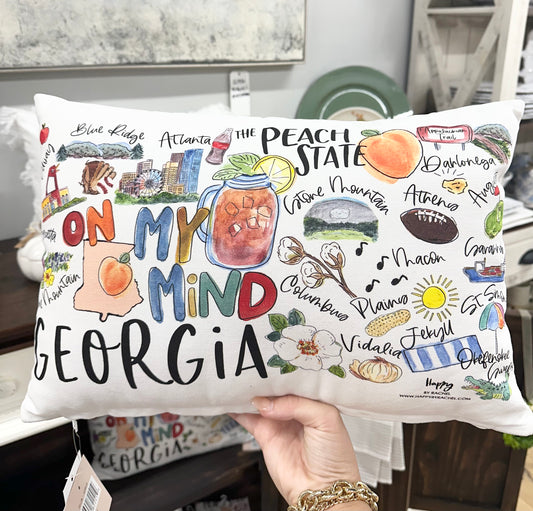 Blue Ridge
Atlanta
THE PEACH STATE
Appalachian Trail
Dahlonega
Stone Mountain
Athens
Aug
ON MY MIND
GEORGIA
Mountain
Macon
Savanna
Columbus
Plains
St Sim
Vidalia
Jekyll
Okefenokee
Happy
BY RACHEL
WWW.HAPPYBYRACHEL.COM
ON MY MIND
GEORGIA